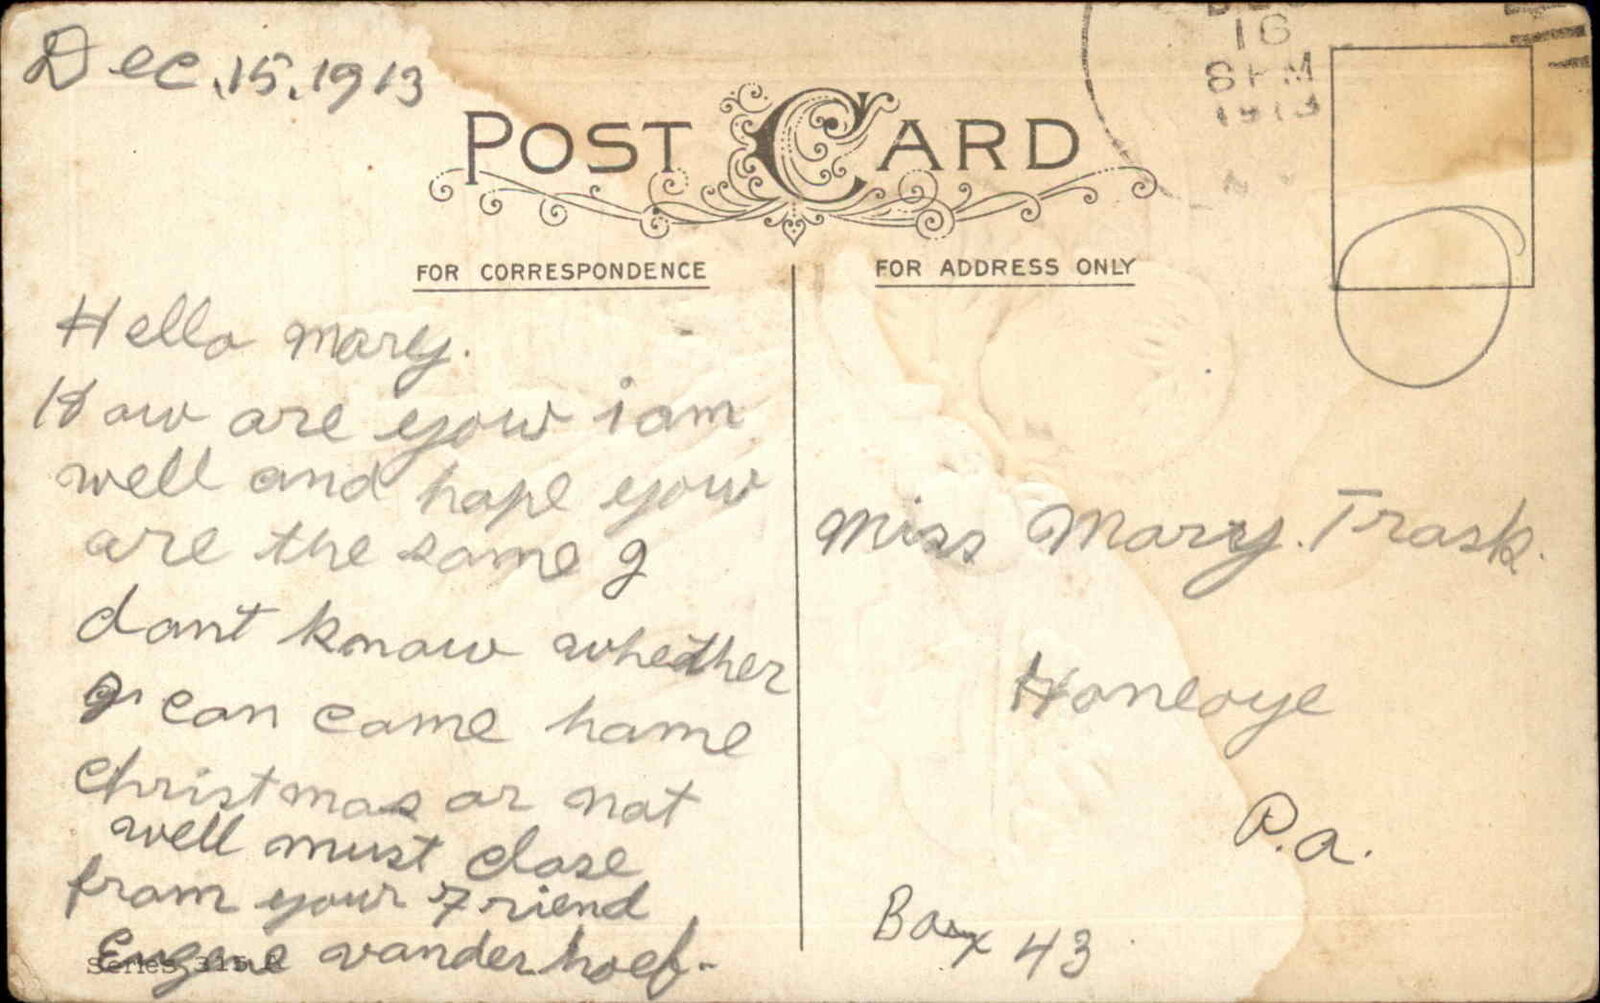 Dec. 15. 1913
POST CARD
16
8 PM
1913
FOR CORRESPONDENCE
FOR ADDRESS ONLY
Hello Mary.
How are yow i am
well and hope yow
are the same I
dont know whether
I can come home
christmas or not
well must close
from your Friend
Eugene vanderhoef.
Series 315 
Miss Mary. Trask.
Honeoye
P.a.
Box 43